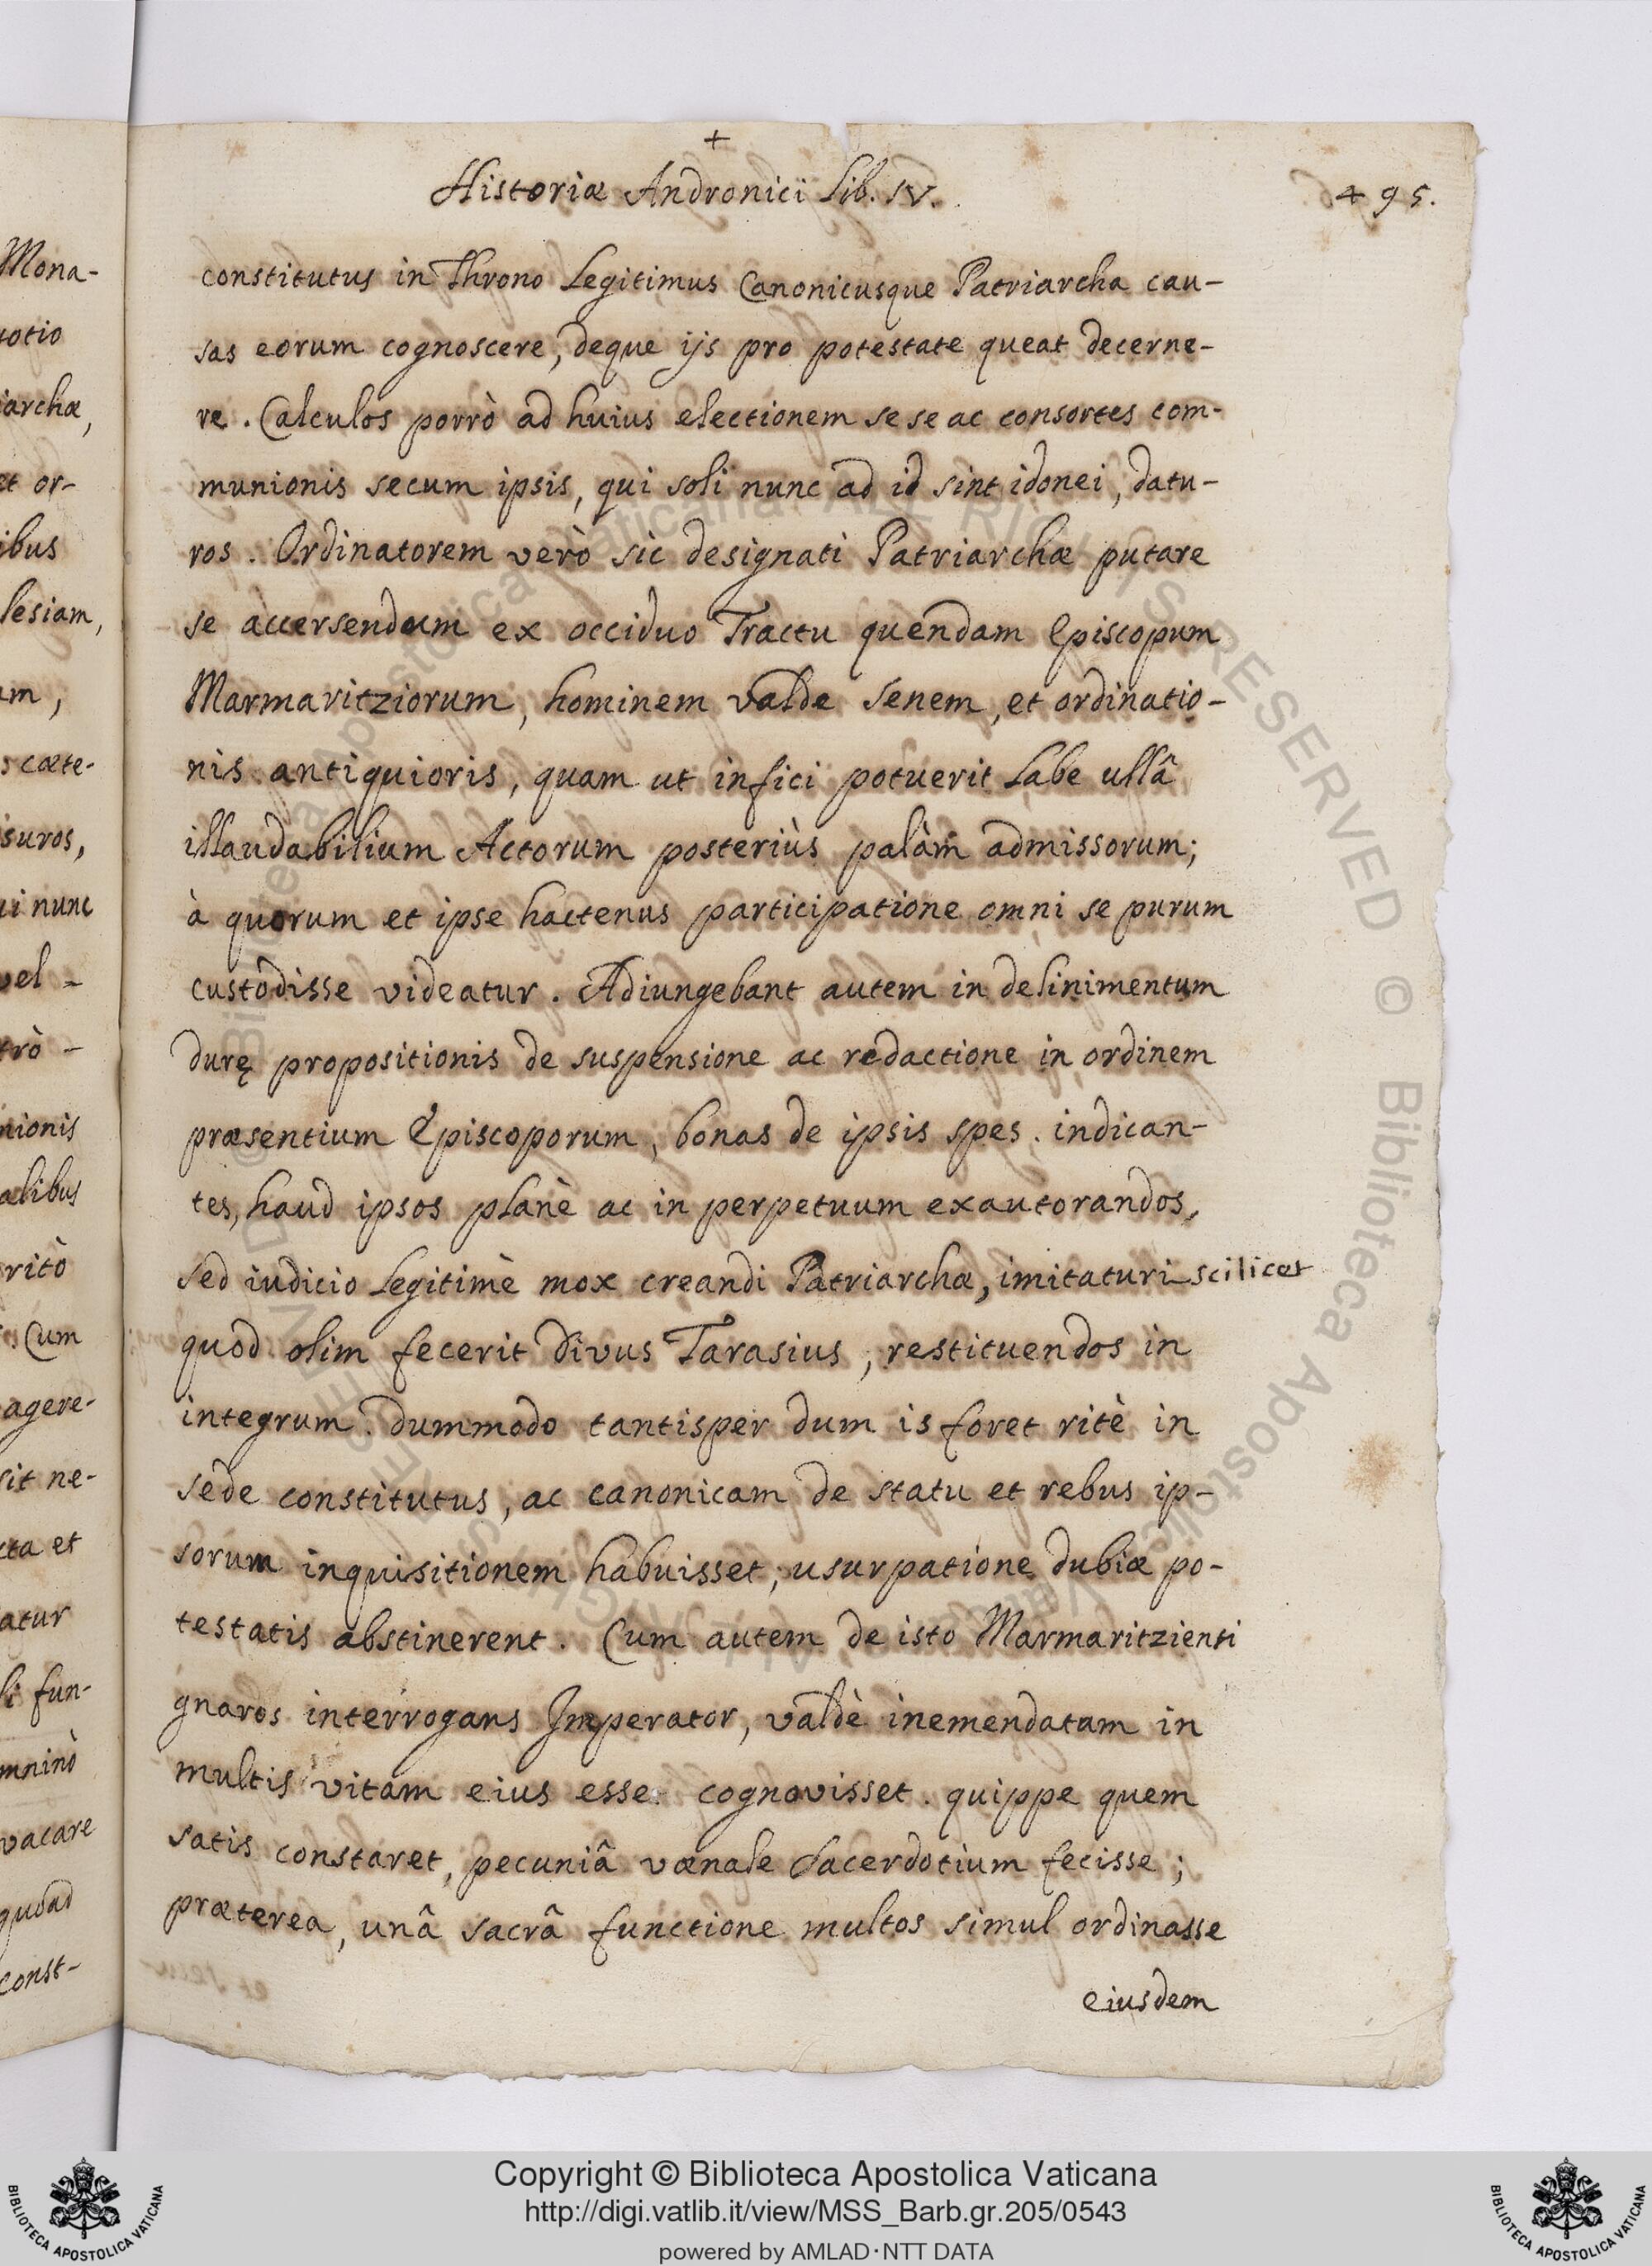 +
Historiæ Andronici Lib. IV.
495.
constitutus in Throno Legitimus Canonicusque Patriarcha cau-
sas eorum cognoscere, deque ijs pro potestate queat decerne-
re. Calculos porrò ad huius electionem se se ac consortes com-
munionis secum ipsis, qui soli nunc ad id sint idonei, datu-
ros. Ordinatorem verò sic designati Patriarchæ putare
se accersendum ex occiduo Tractu quendam Episcopum
Marmaritziorum, hominem valde senem, et ordinatio-
nis antiquioris, quam ut infici potuerit Labe ullâ
illaudabilium Actorum posteriùs palàm admissorum;
à quorum et ipse hactenus participatione omni se purum
custodisse videatur. Adiungebant autem in delinimentum
durę propositionis de suspensione ac redactione in ordinem
præsentium Episcoporum, bonas de ipsis spes. indican-
tes, haud ipsos planè ac in perpetuum exautorandos,
sed iudicio Legitimè mox creandi Patriarchæ, imitaturi scilicet
quod olim fecerit Divus Tarasius, restituendos in
integrum. dummodo tantisper dum is foret ritè in
sede constitutus, ac canonicam de statu et rebus ip-
sorum inquisitionem habuisset, usurpatione dubiæ po-
testatis abstinerent. Cum autem de isto Marmaritziensi
gnaros interrogans Imperator, valdè inemendatam in
multis vitam eius esse cognovisset. quippe quem
satis constaret, pecuniâ vænale Sacerdotium fecisse;
præterea, unâ sacrâ functione multos simul ordinasse
eiusdem
Mona-
iarchæ,
et or-
ibus
lesiam,
s cæte-
suros,
ui nunc
vel -
trò -
nionis
alibus
ritò
Cum
agere-
sit ne-
cta et
atur
li fun-
mninò
vacare
quoad
const-
Copyright © Biblioteca Apostolica Vaticana
http://digi.vatlib.it/view/MSS_Barb.gr.205/0543
powered by AMLAD·NTT DATA
BIBLIOTECA APOSTOLICA VATICANA
BIBLIOTECA APOSTOLICA VATICANA